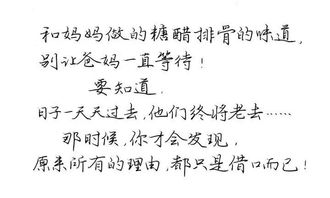 和妈妈做的糖醋排骨的味道,
别让爸妈一直等待!
要知道.
日子一天天过去,他们终将老去……
那时候,你才会发现,
原来所有的理由,都只是借口而已!